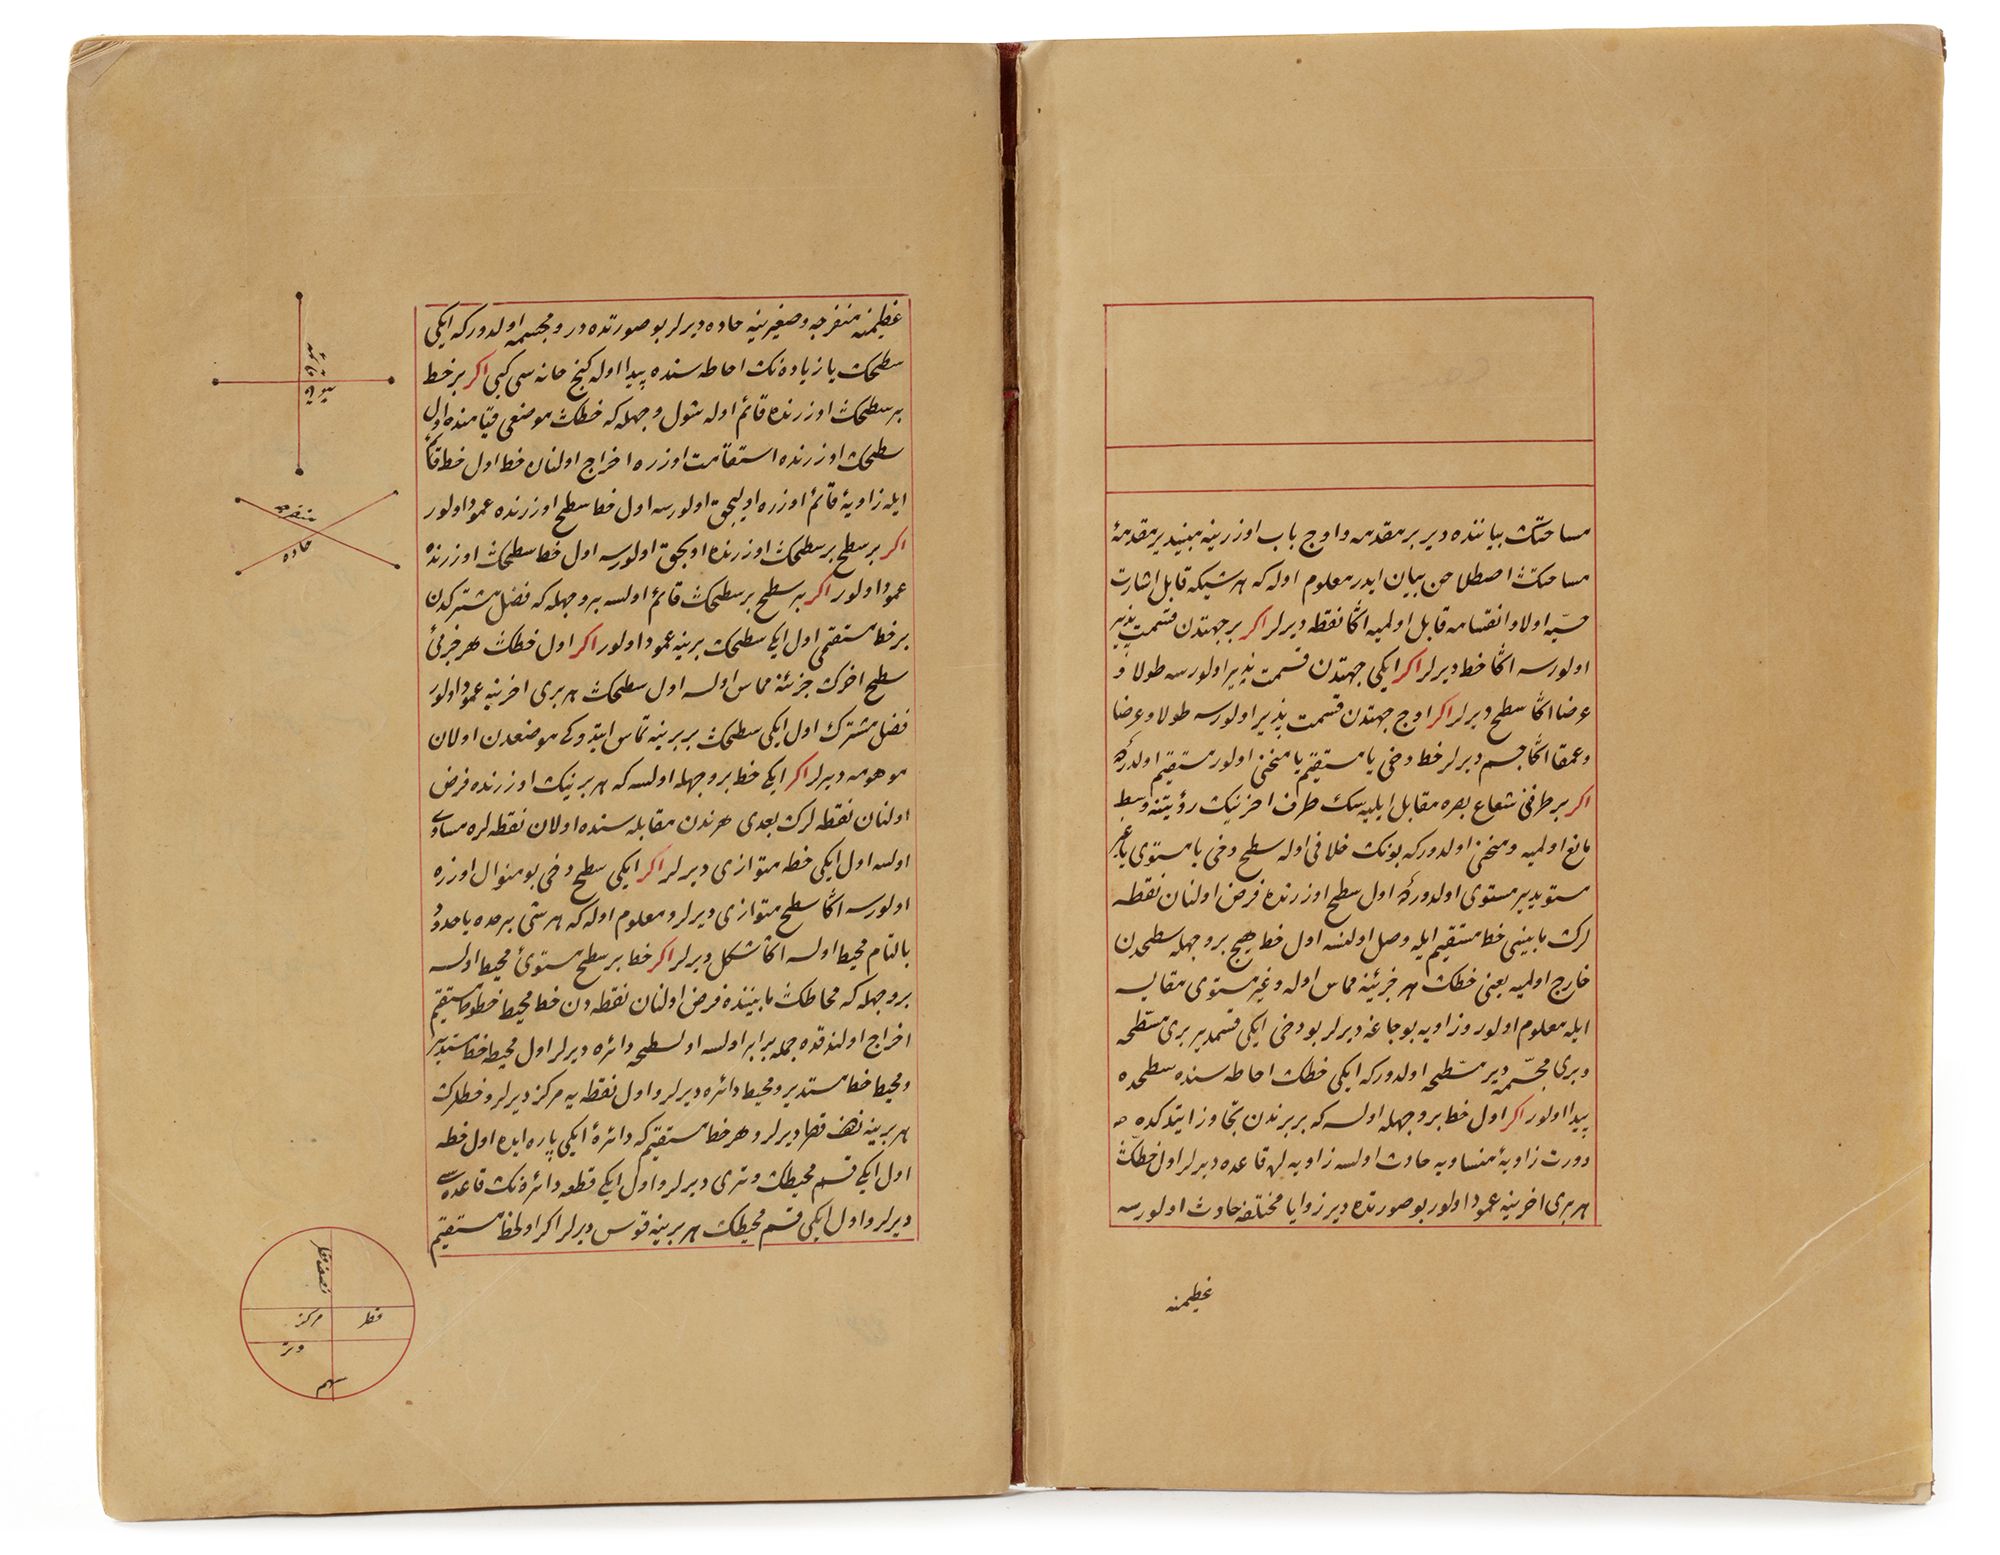 مساحتك بياننده دير بر مقدمه و اوج باب اوزرينه مبنيدير مقدمۀ
مساحتك اصطلاحن بيان ايدر معلوم اوله كه هر شيكه قابل اشارت
حسيه اولا و انقسامه قابل اولميه اڭا نقطه ديرلر اكر بر جهتدن قسمت پذير
اولورسه اڭا خط ديرلر اكر ايكى جهتدن قسمت پذير اولورسه طولا و
عرضا اڭا سطح ديرلر اكر اوج جهتدن قسمت پذير اولورسه طولا و عرضا
و عمقا اڭا جسم ديرلر خط دخى يا مستقيم يا منحنى اولور مستقيم اولدركه
اكر بر طرفى شعاع بصره مقابل ايليه سك طرف اخرينك رؤيتنه وسط
مانع اولميه و منحنى اولدوركه بونك خلافى اوله سطح دخى يا مستوى يا غير
مستويدير مستوى اولدوركه اول سطح اوزرنده فرض اولنان نقطه
لرك مابينى خط مستقيم ايله وصل اولنسه اول خط هيچ بر وجهله سطحدن
خارج اولميه يعنى خطك هر جزئينه مماس اوله و غير مستوى مقايسه
ايله معلوم اولور و زاويه بوجاغه ديرلر بو دخى ايكى قسمدير برى مسطحه
و برى مجسّمه دير مسطّحه اولدوركه ايكى خطك احاطه سنده سطحده
پيدا اولور اكر اول خط بر وجهله اولسه كه بربرندن تجاوز ايتدكده
دورت زاويۀ متساويه حادث اولسه زاويه لره قاعده ديرلر اول خطك
هر برى اخرينه عمود اولور بو صورتده دير زوايا مختلفه حادث اولورسه
عظيمنه
عظيمنه منفرجه و صغيرينه حاده ديرلر بو صورتده در و مجسمه اولدوركه ايكى
سطحك يا زياده نك احاطه سنده پيدا اوله كنج خانه سى كبى اكر بر خط
بر سطحك اوزرنده قائم اوله شول وجهله كه خطك موضعى قيامنده اول
سطحك اوزرنده استقامت اوزره اخراج اولنان خط اول خط قائم
ايله زاويۀ قائمۀ اوزره اوليجق اولورسه اول خط سطح اوزرنده عمود اولور
اكر بر سطح بر سطحك اوزرنده اوليجق اولورسه اول خط سطحك اوزرنده
عمود اولور اكر بر سطح بر سطحك قائم اولسه بر وجهله كه فصل مشتركدن
بر خط مستقيمى اول ايكى سطحك برينه عمود اولور اكر اول خطك هر جزئى
سطح اخرك جزئنه مماس اولسه اول سطحك هر برى اخرينه عمود اولور
فصل مشترك اول ايكى سطحك بربرينه تماس ايتدوكى موضعدن اولان
موهومه ديرلر اكر ايكى خط بر وجهله اولسه كه هر برينك اوزرنده فرض
اولنان نقطه لرك بعدى هرندن مقابله سنده اولان نقطه لره مساوى
اولسه اول ايكى خطه متوازى ديرلر اكر ايكى سطح دخى بو منوال اوزره
اولورسه اڭا سطح متوازى ديرلر و معلوم اوله كه هر شى بر حده يا حدود
بالتمام محيط اولسه اڭا شكل ديرلر اكر خط بر سطح مستوىٔ محيط اولسه
بر وجهله كه محاطك مابيننده فرض اولنان نقطه دن خط محيط خطوط مستقيم
اخراج اولندقده جمله برابر اولسه اول سطحه دائره ديرلر اول محيطه خط مستدير
و محيط خط مستدير و محيط دائره ديرلر و اول نقطه يه مركز ديرلر و خطلرك
هر برينه نصف قطر ديرلر و هر خط مستقيم كه دائرۀ ايكى پاره ايده اول خطه
اول ايكى قسم محيطك وترى ديرلر و اول ايكى قطعه دائره نك قاعده سى
ديرلر و اول ايكى قسم محيطك هر برينه قوس ديرلر اكر اول خط مستقيم
منفرجه
حاده
نصف قطر
قطر
مركز
وتر
سهم